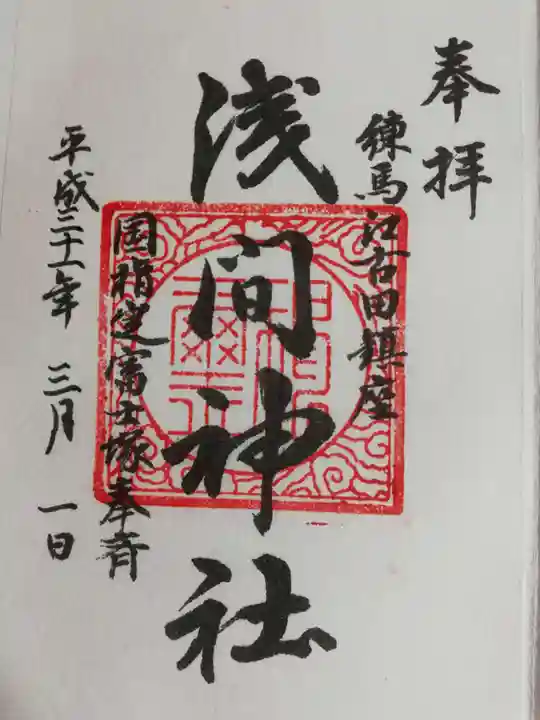 奉拝
練馬江古田鎮座
浅間神社
国指定富士塚奉斉
平成三十一年 三月 一日